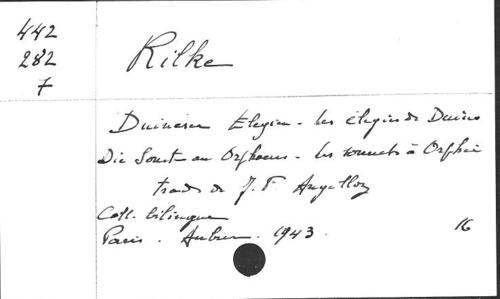 442
282
7
Rilke
Duineser Elegien - les élégies de Duino
Die Sonette an Orpheus - les sonnets à Orphée
trad. de J. F. Angelloz
Coll. bilingue
Paris. Aubier. 1943. 16